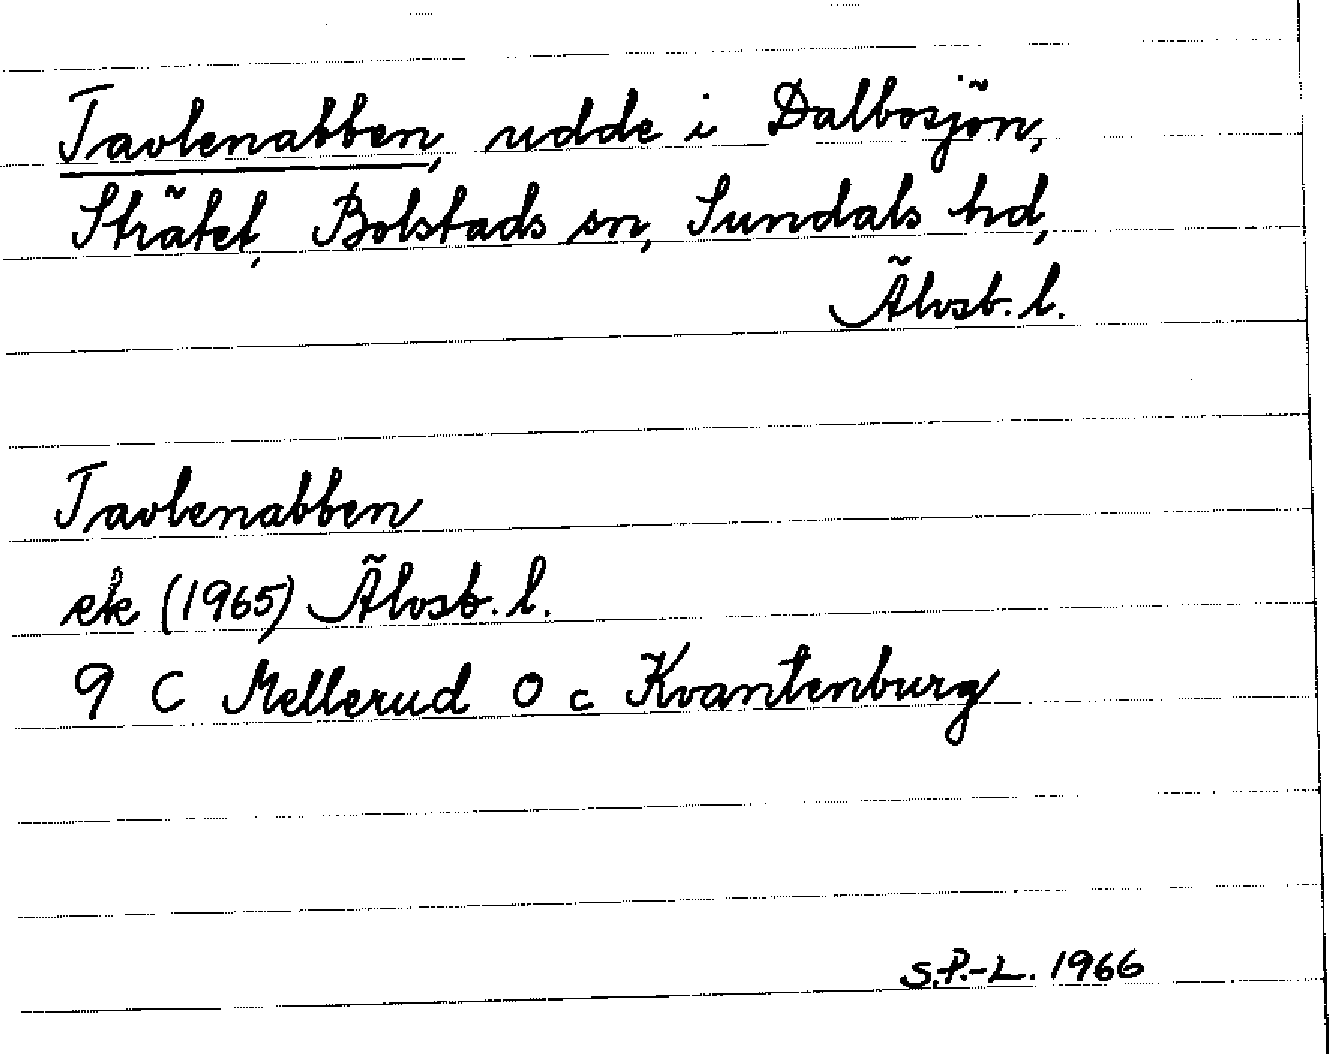 Tavlenabben, udde i Dalbosjön,
Strätet, Bolstads sn, Sundals hd,
Älvsb. l.
Tavlenabben
ek (1965) Älvsb. l.
9 C Mellerud O c Kvantenburg
S.P.-L. 1966